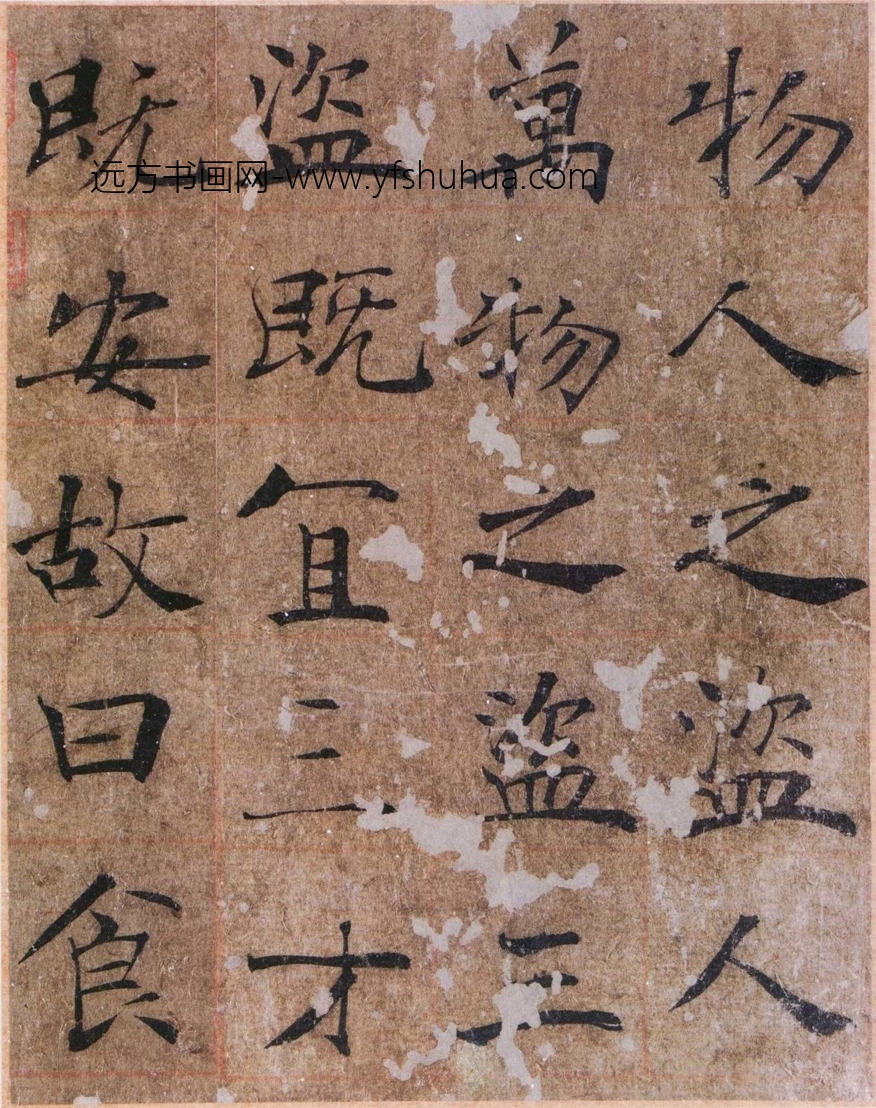 物人之盜人
萬物之盜三
盜既冝三才
既安故曰食
远方书画网-www.yfshuhua.com